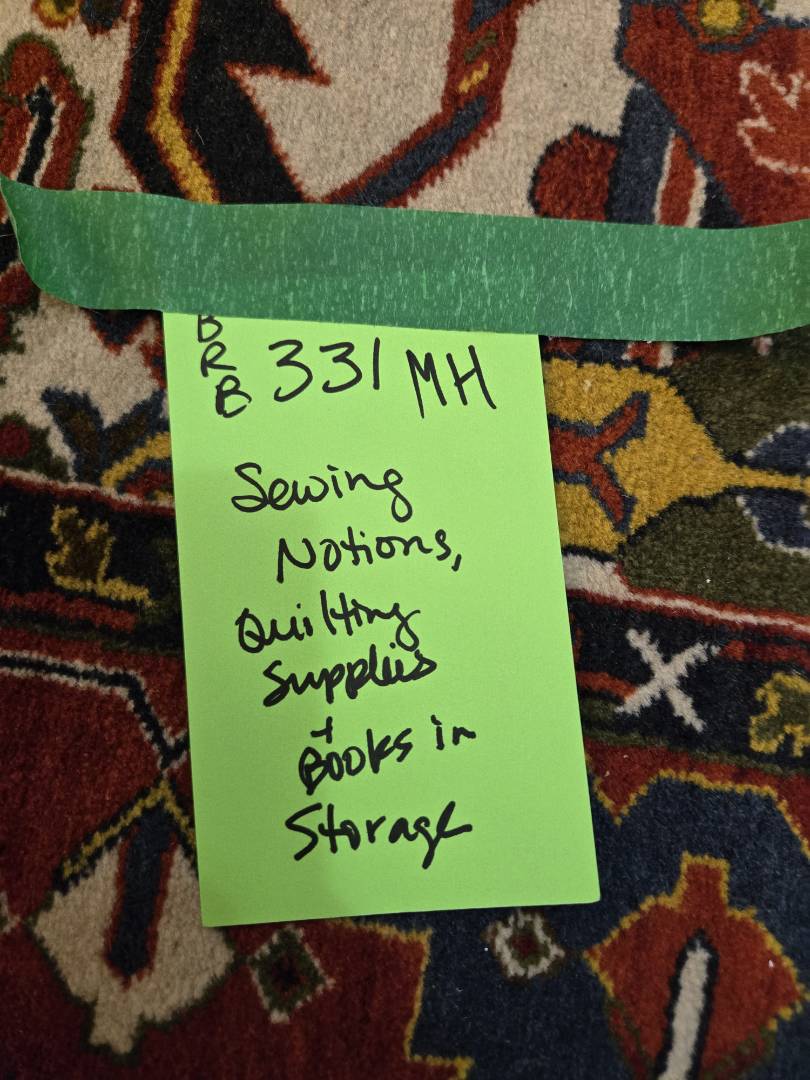 BRB 331 MH
Sewing
Notions,
Quilting
Supplies
+
Books in
Storage